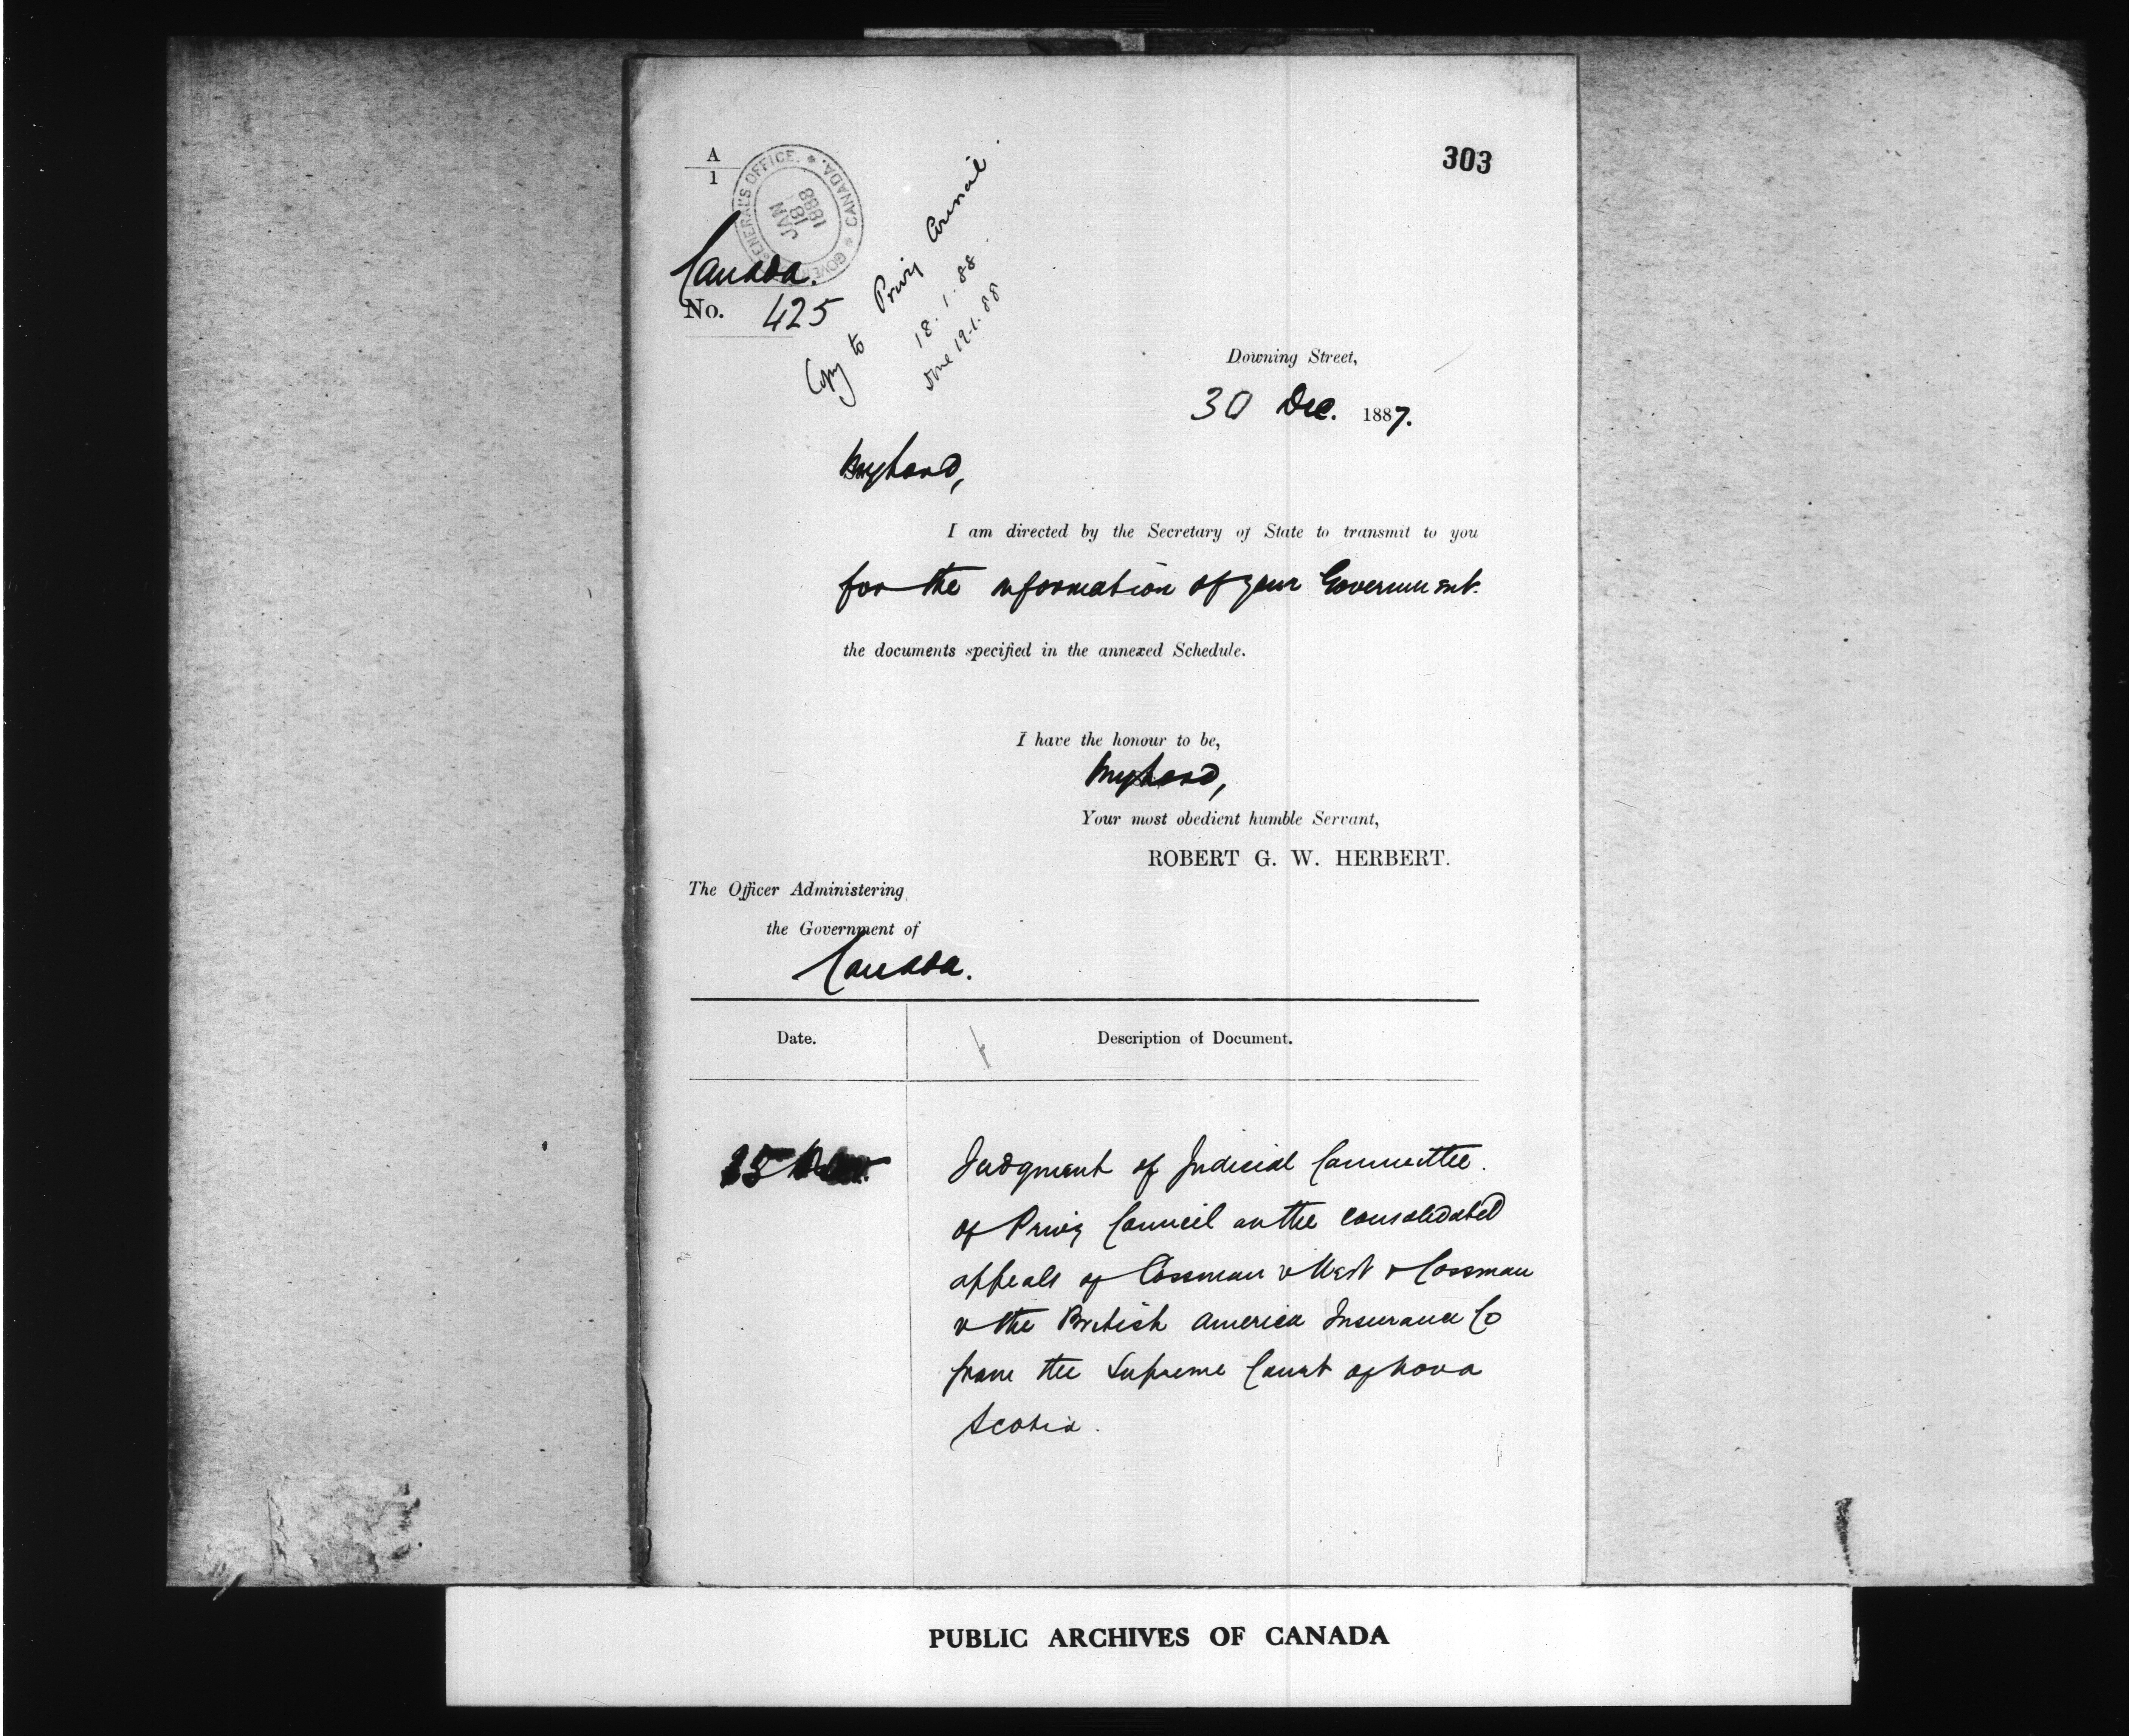 303
A
1
GOVERNOR GENERAL'S OFFICE. * CANADA. *
JAN
18
1888
Canada.
No. 425
Copy to Privy Council
18.1.88
done 19.1.88
Downing Street,
30 Dec. 1887.
My Lord,
I am directed by the Secretary of State to transmit to you
for the information of your Government.
the documents specified in the annexed Schedule.
I have the honour to be,
My Lord,
Your most obedient humble Servant,
ROBERT G. W. HERBERT.
The Officer Administering
the Government of
Canada.
Date. Description of Document.
Judgment of Judicial Committee.
of Privy Council on the consolidated
appeals of Cossman v West & Cossman
v the British America Insurance Co
from the Supreme Court of Nova
Scotia.
PUBLIC ARCHIVES OF CANADA